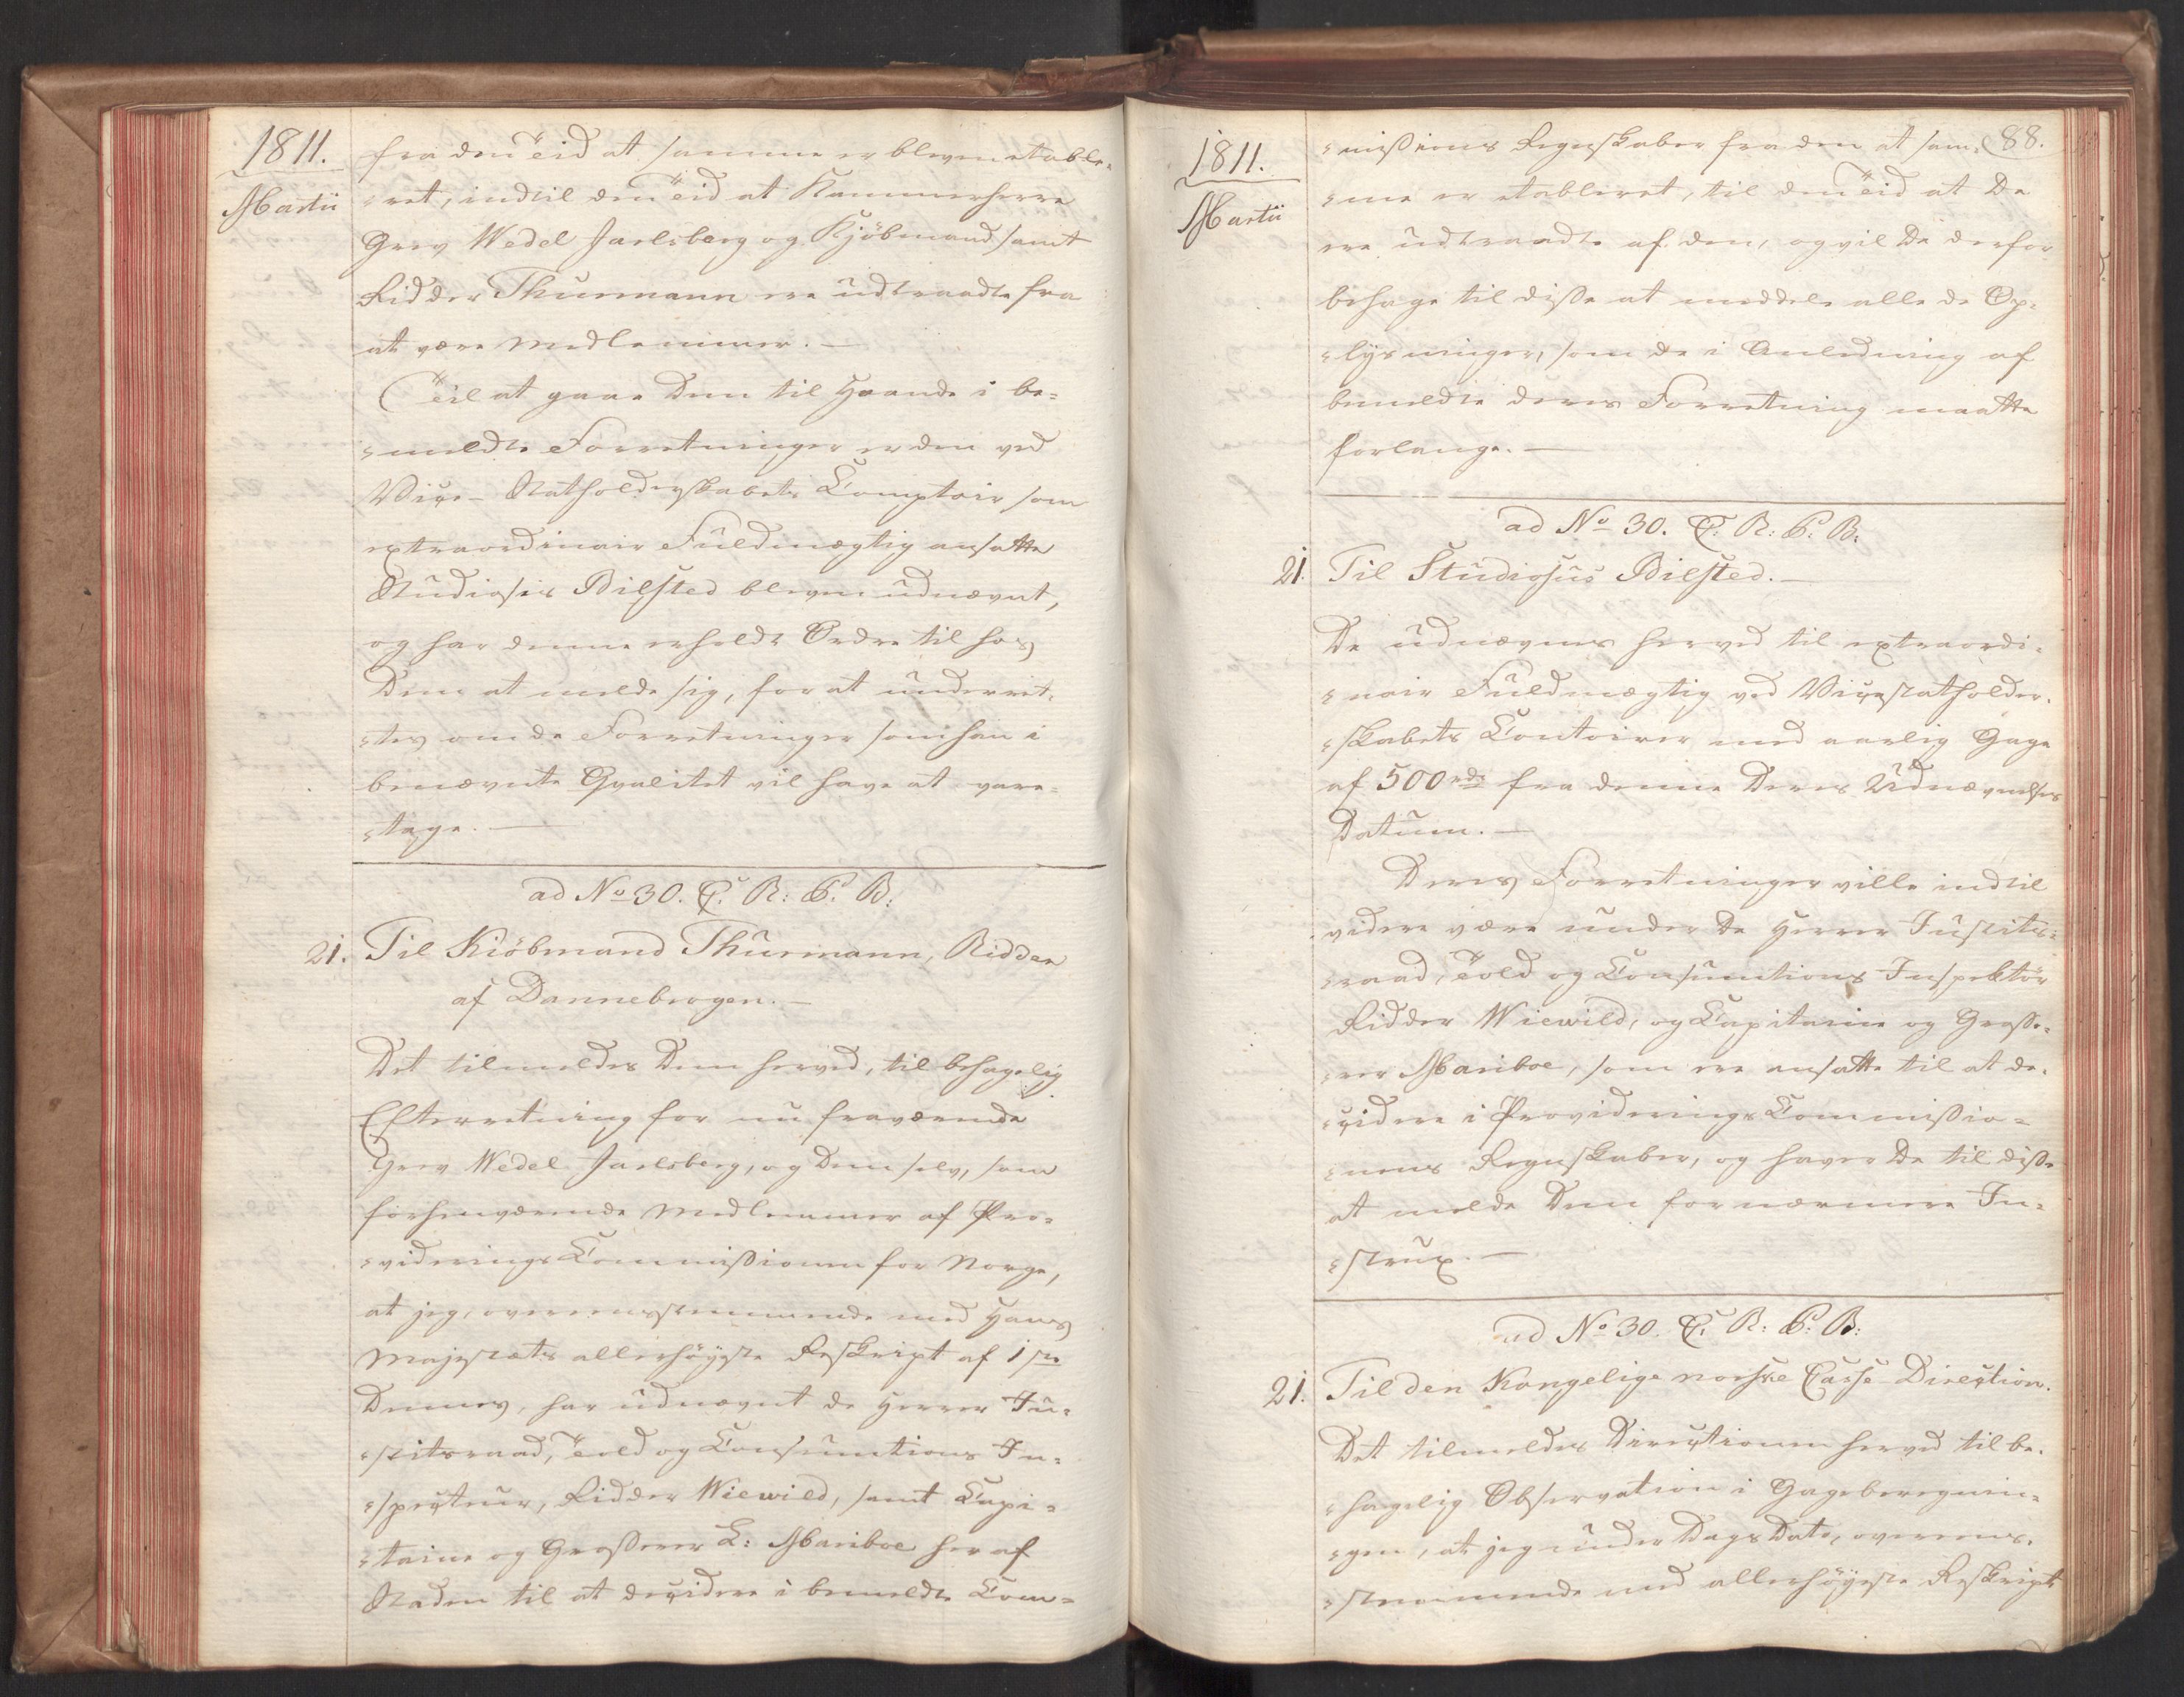 1811.
Martii
fra den Tid at samme er bleven etable-
-ret, indtil den Tid at Kammerherre
Grev Wedel Jarlsberg og Kjöbmand samt
Ridder Thurmann ere udtraadte fra
at være Medlemmer. —
Til at gaae Dem til Haande i be-
-meldte Forretninger er den ved
Vice-Statholderskabets Comptoir som
extraordinair Fuldmægtig ansatte
Studiosus Bilsted bleven udnævnt,
og har denne erholdt Ordre til hos
Dem at melde sig, for at underret-
-tes om de Forretninger som han i
benævnte Qvalitet vil have at vare-
-tage. —
ad No 30. C. R: P. B:
21. Til Kiöbmand Thurmann, Ridder
af Dannebrogen. —
Det tilmeldes Dem herved, til behagelig
Efterretning for nu fraværende
Grev Wedel Jarlsberg, og Dem selv, som
forhenværende Medlemmer af Pro-
-viderings Commissionen for Norge,
at jeg, overeensstemmende med Hans
Majestæts allerhöyeste Reskript af 1ste
Dennes, har udnævnt de Herrer Ju-
-stitsraad, Told og Consumtions In-
-specteur, Ridder Wiewild, samt Capi-
-taine og Grosserer L: Mariboe her af
Staden til at decidere i bemeldte Com-
1811.
Martii
88.
-missions Regnskaber fra den at sam-
-me er etableret, til den Tid at De
ere udtraadte af den, og vil De derfor
behage til disse at meddele alle de Op-
-lysninger, som de i Anledning af
bemeldte deres Forretning maatte
forlange. —
ad No 30. C. R: P. B:
21. Til Studiosus Bilsted. —
De udnævnes herved til extraordi-
-nair Fuldmægtig ved Vicestatholder-
-skabets Contoirer med aarlig Gage
af 500 rdr fra denne Deres Udnævnelses
Datum. —
Deres Forretninger ville indtil
videre være under De Herrer Justits-
-raad, Told og Consumtions Inspektör
Ridder Wiewild, og Capitaine og Grosse-
-rer Mariboe, som ere ansatte til at de-
-cidere i Providerings Commissio-
-nens Regnskaber, og haver De til disse
at melde Dem for nærmere In-
-strux. —
ad No 30. C. R: P. B:
21. Til den Kongelige norske Casse-Direction.
Det tilmeldes Directionen herved til be-
-hagelig Observation i Gageberegnin-
-gen, at jeg under Dags Dato, overeens-
-stemmende med allerhöyeste Reskript